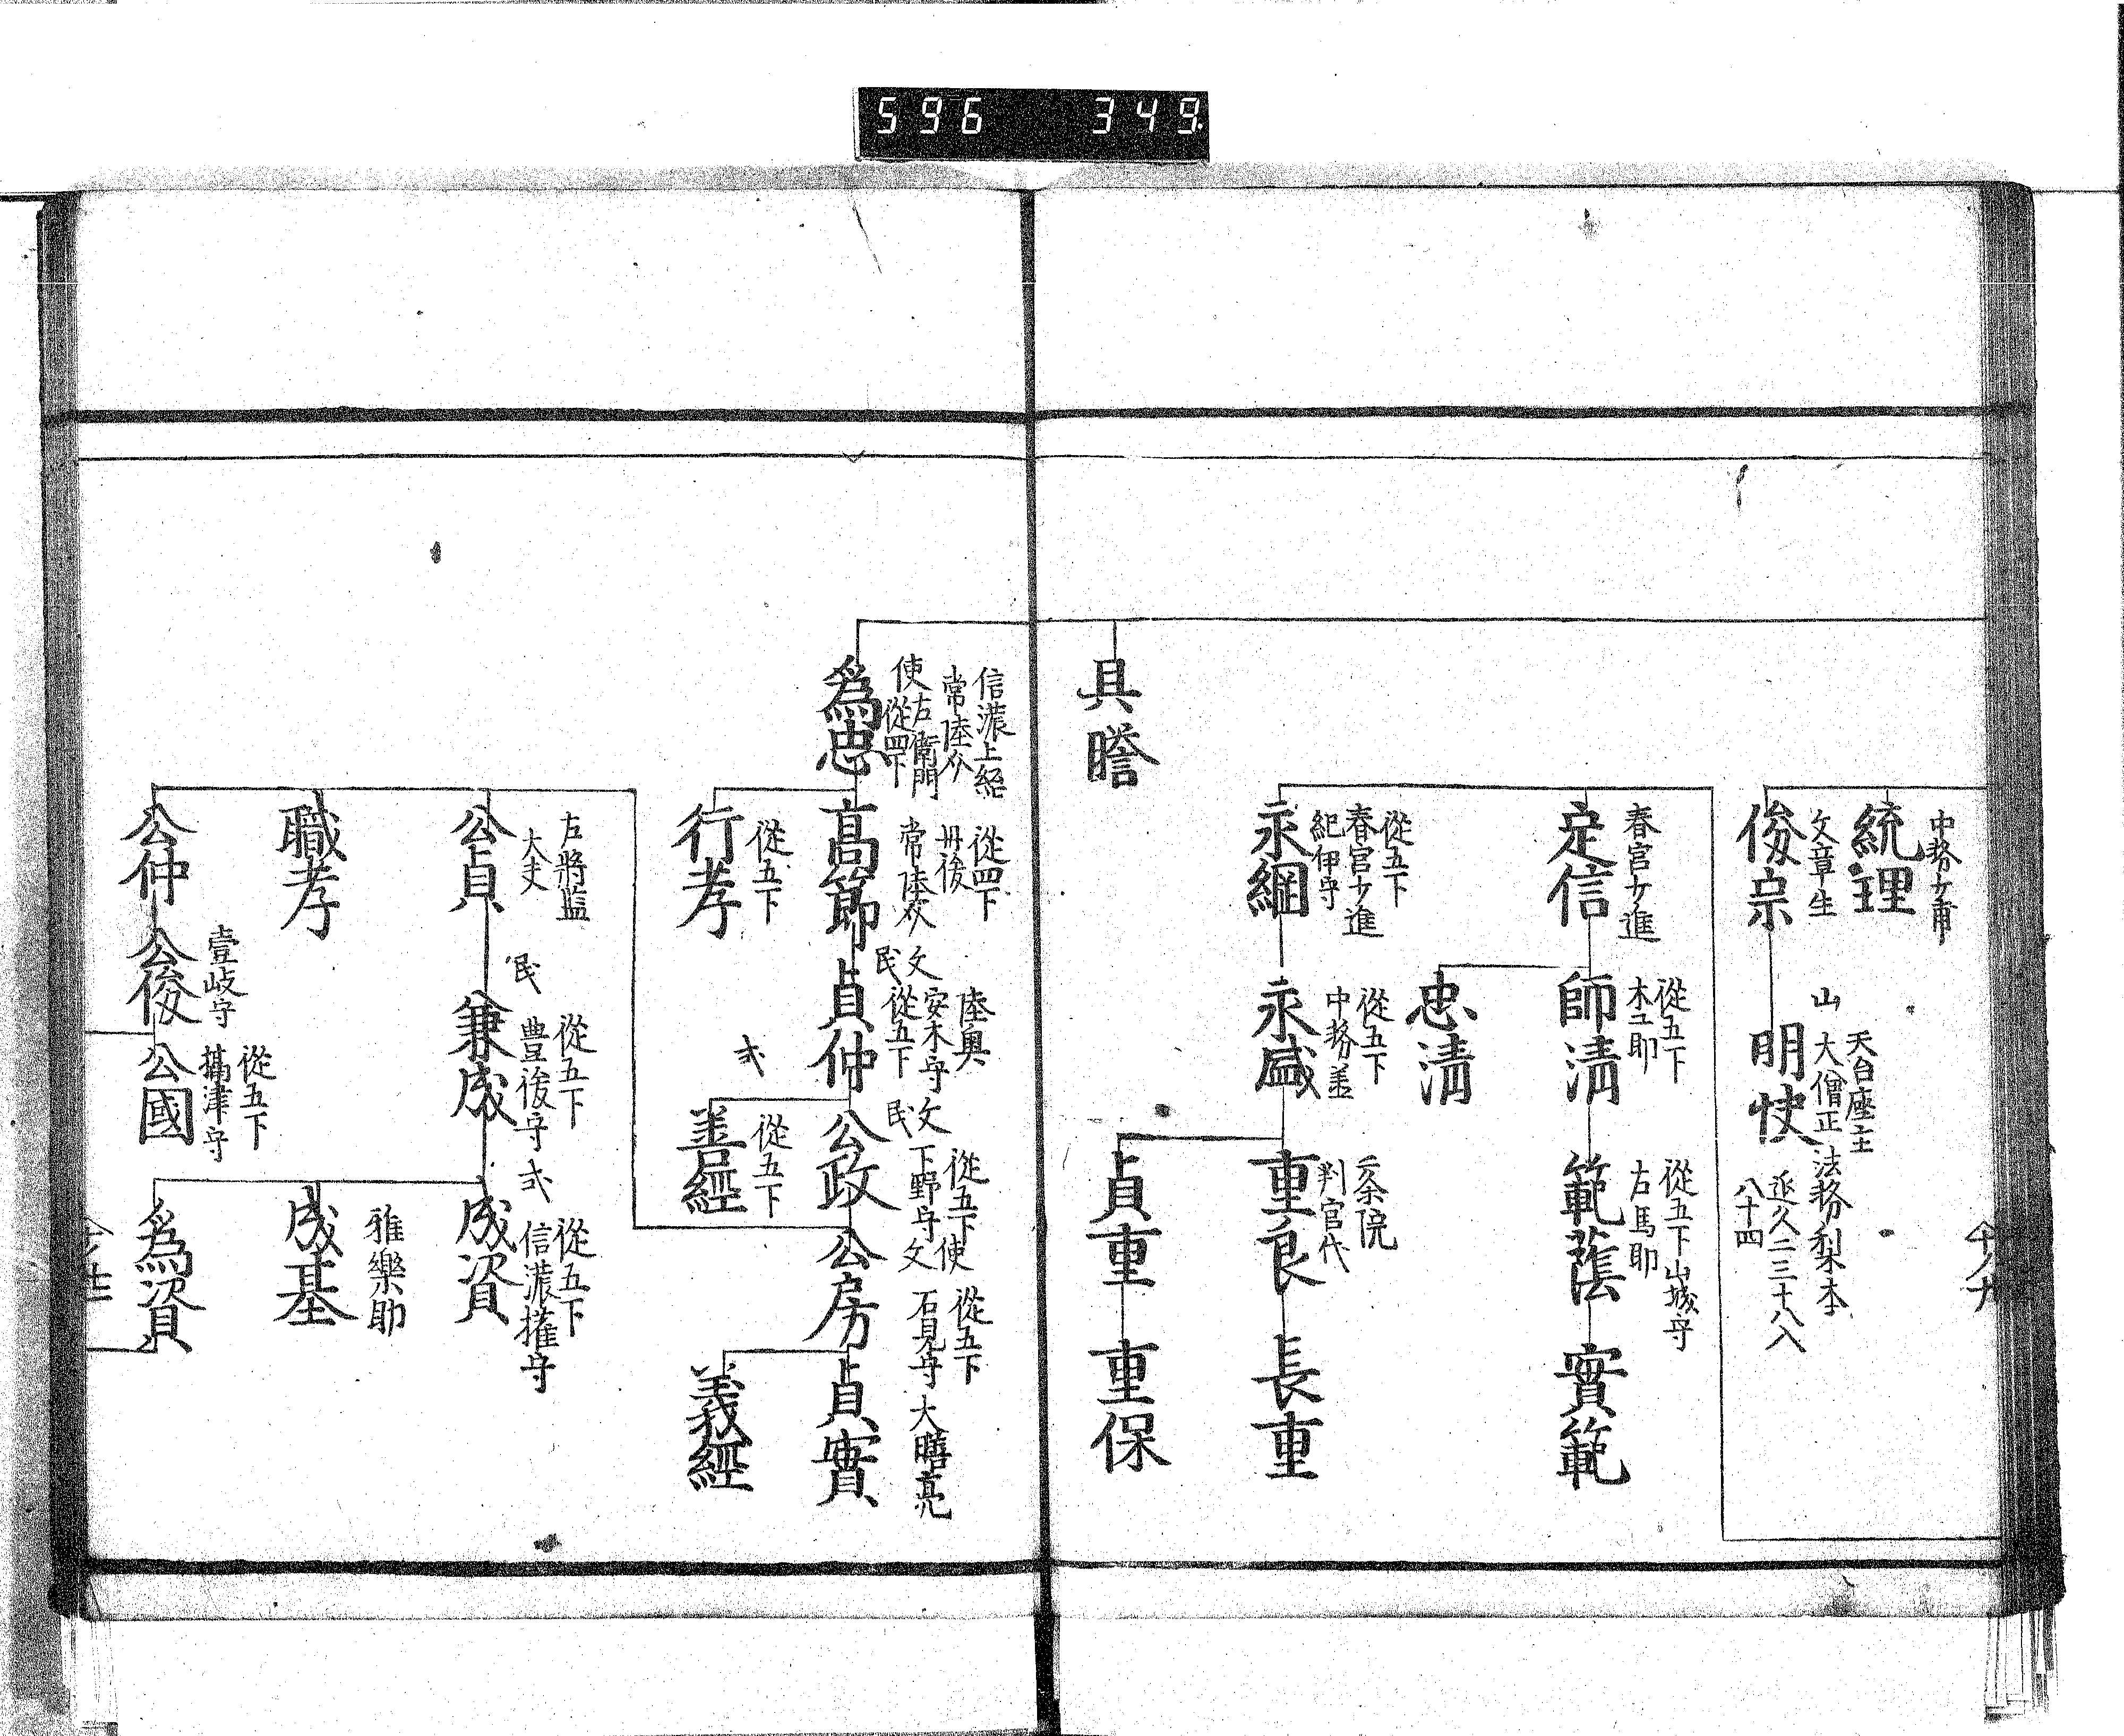 596 349
中務少甫
統理
文章生
俊宗
山
天台座主
大僧正
法務梨本
明快
延久二三十八入
八十四
春宮少進
定信
從五下
木工助
師淸
從五下山城守
右馬助
範蔭
實範
忠淸
從五下
春宮少進
紀伊守
永綱
從五下
中務丞
永盛
判官代
重良
長重
貞重
重保
具瞻
信濃上総
常陸介
使左衛門
從四下
爲忠
從四下
丹後
常陸介
高節
陸奥
安木守
從五下
文
民
貞仲
從五下使
下野守
文
民
公政
從五下
石見守
文
公房
大膳亮
貞實
義經
從五下
行孝
式
從五下
善經
左將監
大夫
公貞
民
從五下
豊後守
兼成
式
從五下
信濃權守
成資
職孝
雅樂助
成基
公仲
壹岐守
公俊
從五下
摂津守
公國
爲資